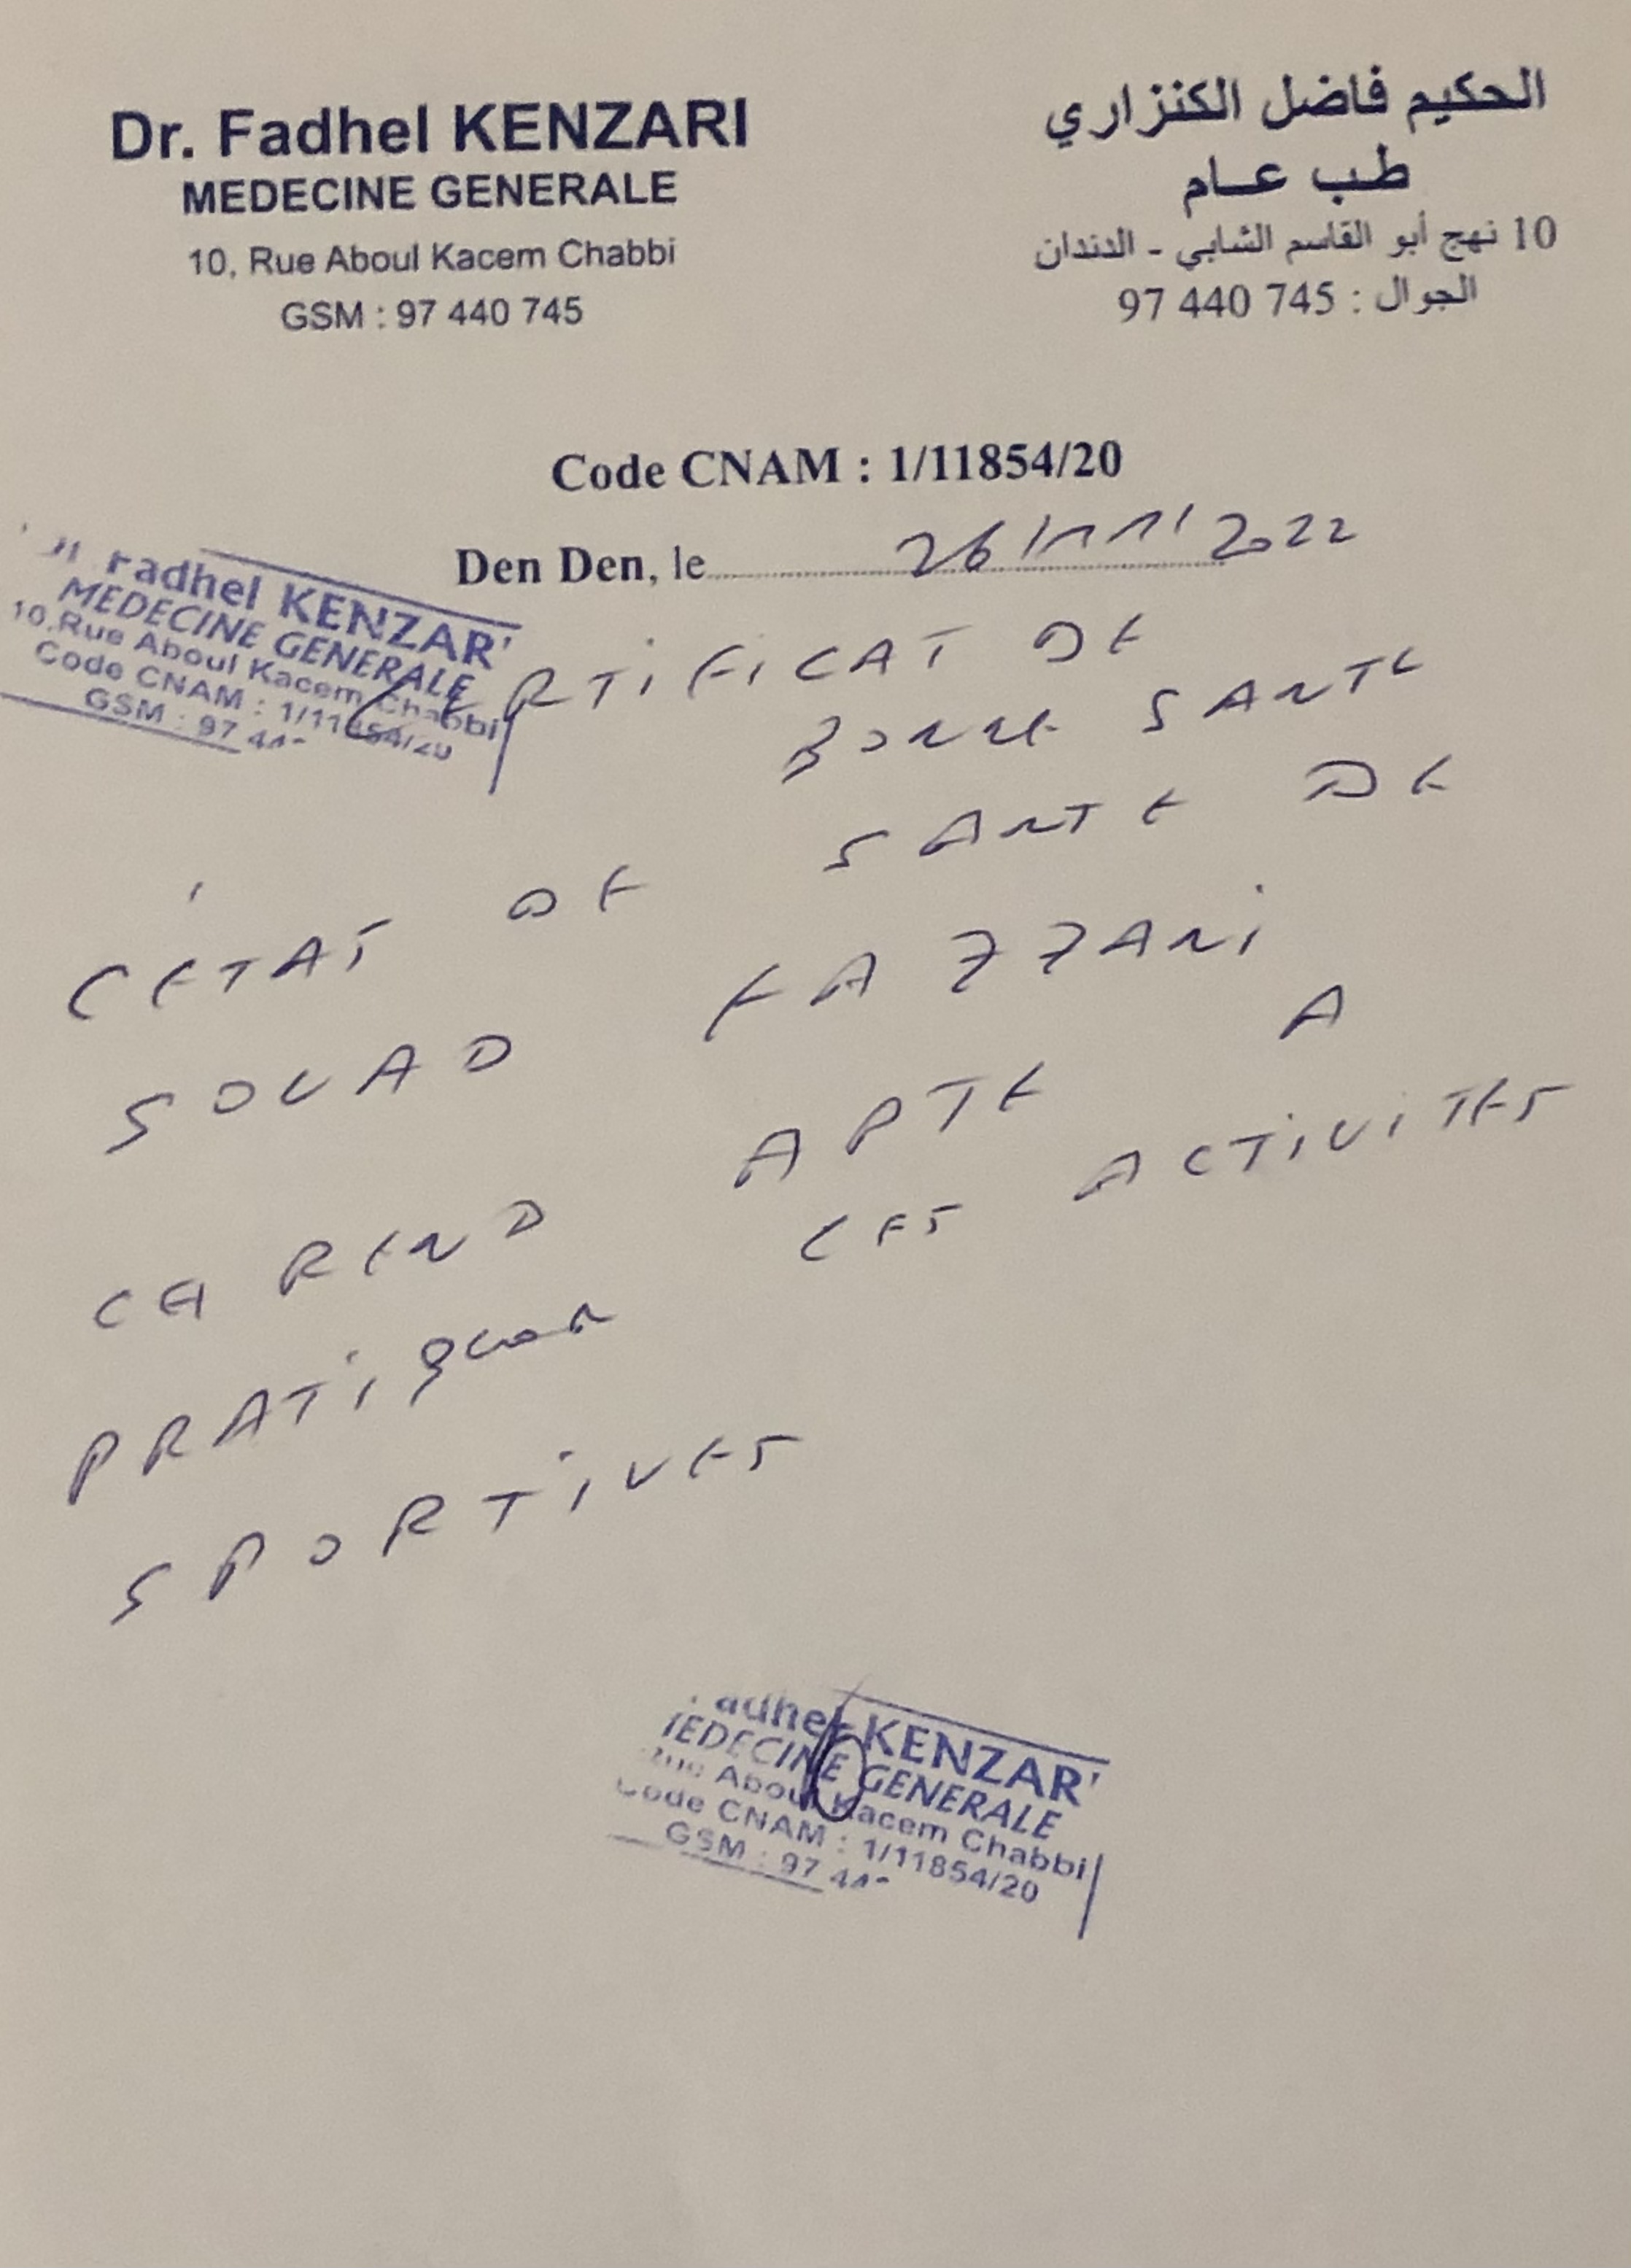 Dr. Fadhel KENZARI
MEDECINE GENERALE
10, Rue Aboul Kacem Chabbi
GSM : 97 440 745
الحكيم فاضل الكنزاري
طب عام
10 نهج أبو القاسم الشابي - الدندان
الجوال : 745 440 97
Code CNAM : 1/11854/20
Den Den, le 26/11/2022
Fadhel KENZAR
MEDECINE GENERALE
10,Rue Aboul Kacem Chabbi
Code CNAM : 1/11854/20
GSM : 97
CERTIFICAT DE
BONNE SANTE
L'ETAT DE SANTE DE
SOUAD EAZZANI
LA REND APTE A
PRATIQUER LES ACTIVITES
SPORTIVES
KENZAR
GENERALE
Aboul Kacem Chabbi
Code CNAM : 1/11854/20
GSM : 97